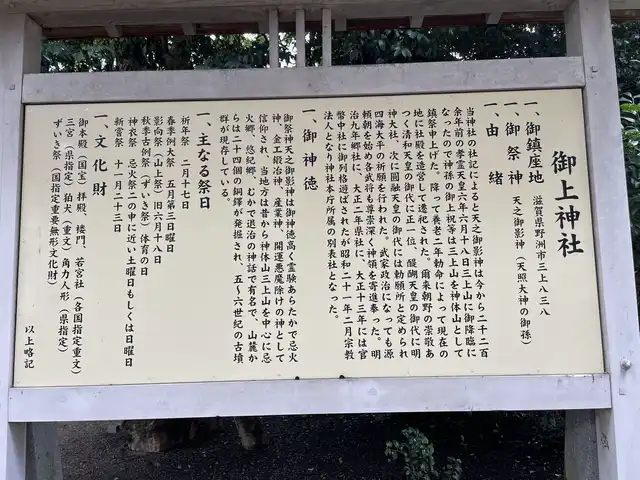 御上神社
一、御鎮座地 滋賀県野洲市三上八三八
一、御祭神 天之御影神(天照大神の御孫)
一、由緒
当神社の社記によると天之御影神は今から二千二百
余年前の孝霊天皇六年六月十八日三上山に御降臨に
なったので神孫の御上祝等は三上山を神体山として
鎮祭申上げた。降って養老二年勅命によって現在の
地に社殿を造営して遷祀された。爾来朝野の崇敬あ
つく清和天皇の御代に正一位、醍醐天皇の御代に明
神大社、次に圓融天皇の御代には勅願所と定められ
四海大平の祈願を行われた。武家政治になっても源
頼朝を始め各武将も尊崇深く神領を寄進奉った。明
治九年郷社に、大正二年県社に、大正十三年には官
幣中社に御列格遊ばされたが昭和二十一年二月宗教
法人となり神社本庁所属の別表社となった。
一、御神徳
御祭神天之御影神は御神徳高く霊験あらたかで忌火
神、金工鍛冶神、産業神、開運悪魔除けの神として
信仰され、当地方は昔から神体山三上山を中心に忌
火郷、悠紀郷、むかで退治の神話で有名で、山麓か
らは二十四個の銅鐸が発掘され、五〜六世紀の古墳
群が現存している。
一、主なる祭日
祈年祭 二月十七日
春季例大祭 五月第三日曜日
影向祭(山上祭)旧六月十八日
秋季古例祭(ずいき祭)体育の日
神衣祭 忌火祭二の申に近い土曜日もしくは日曜日
新嘗祭 十一月二十三日
一、文化財
御本殿(国宝)拝殿、楼門、若宮社(各国指定重文)
三宮(県指定)狛犬(重文)角力人形(県指定)
ずいき祭(国指定重要無形文化財)
以上略記